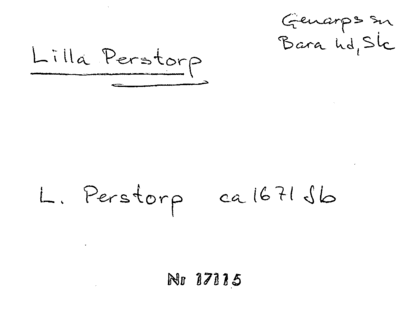 Genarps sn
Bara hd, Sk
Lilla Perstorp
L. Perstorp ca 1671 Jb
Nr 17115